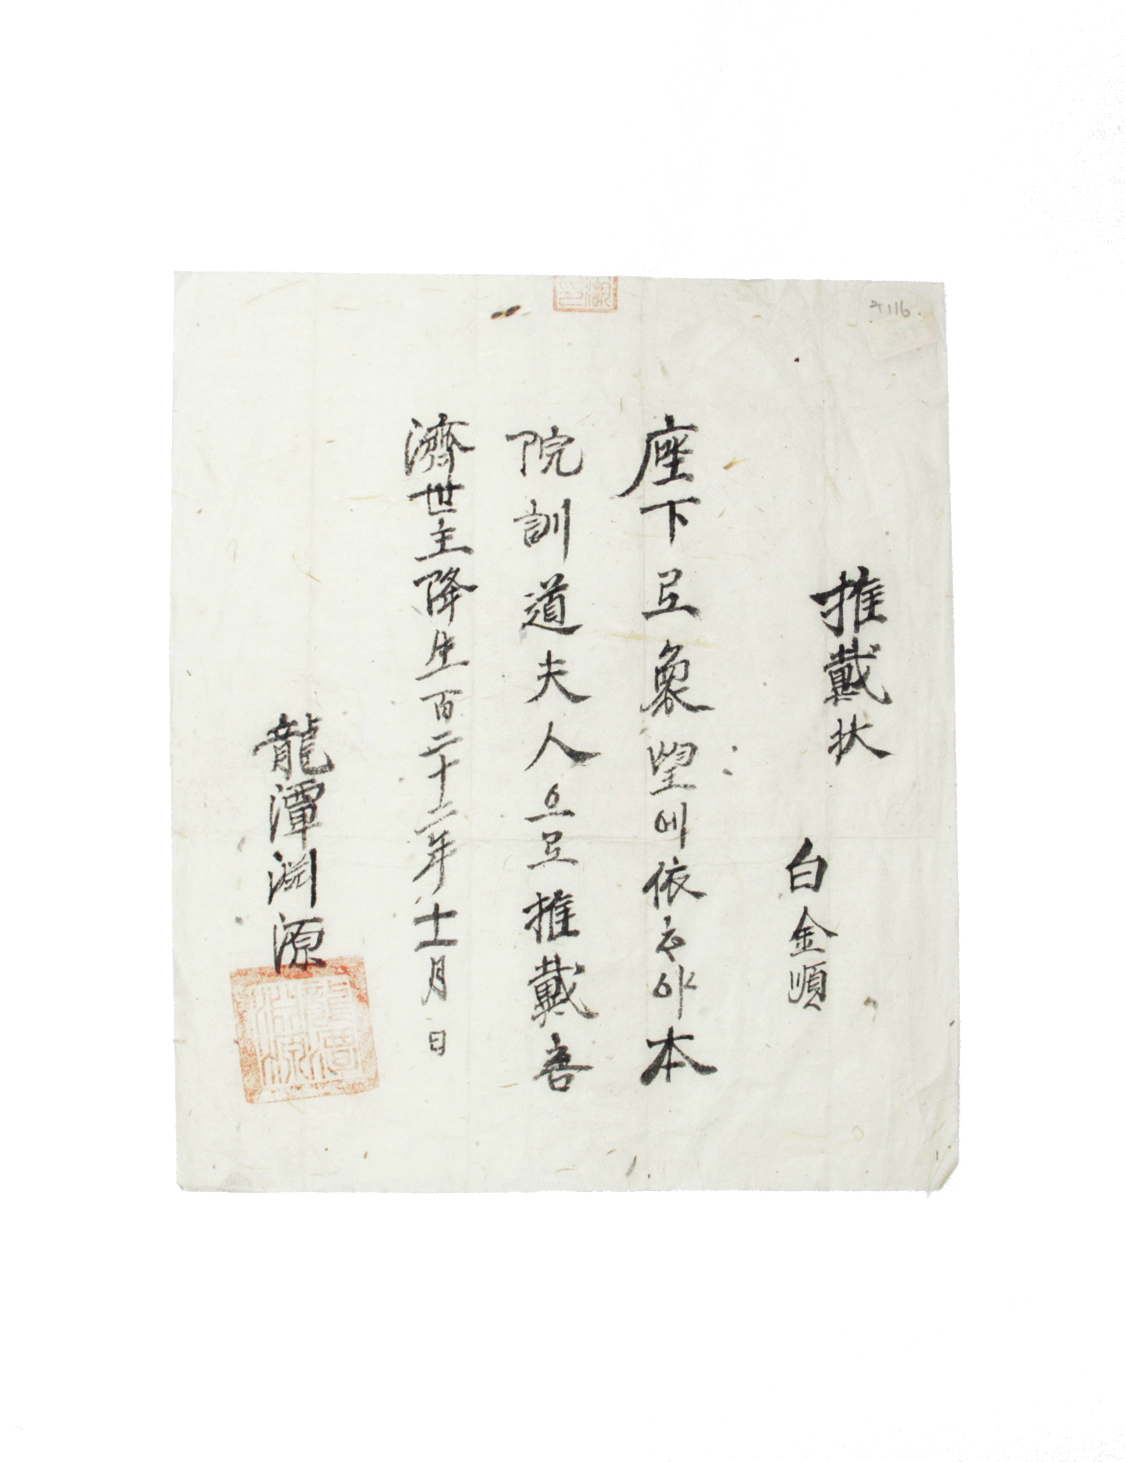 推戴狀
白金順
座下로衆望에依하야本
院訓道夫人으로推戴홈
濟世主降生百二十二年十二月 日
龍潭淵源
龍潭
淵源
116